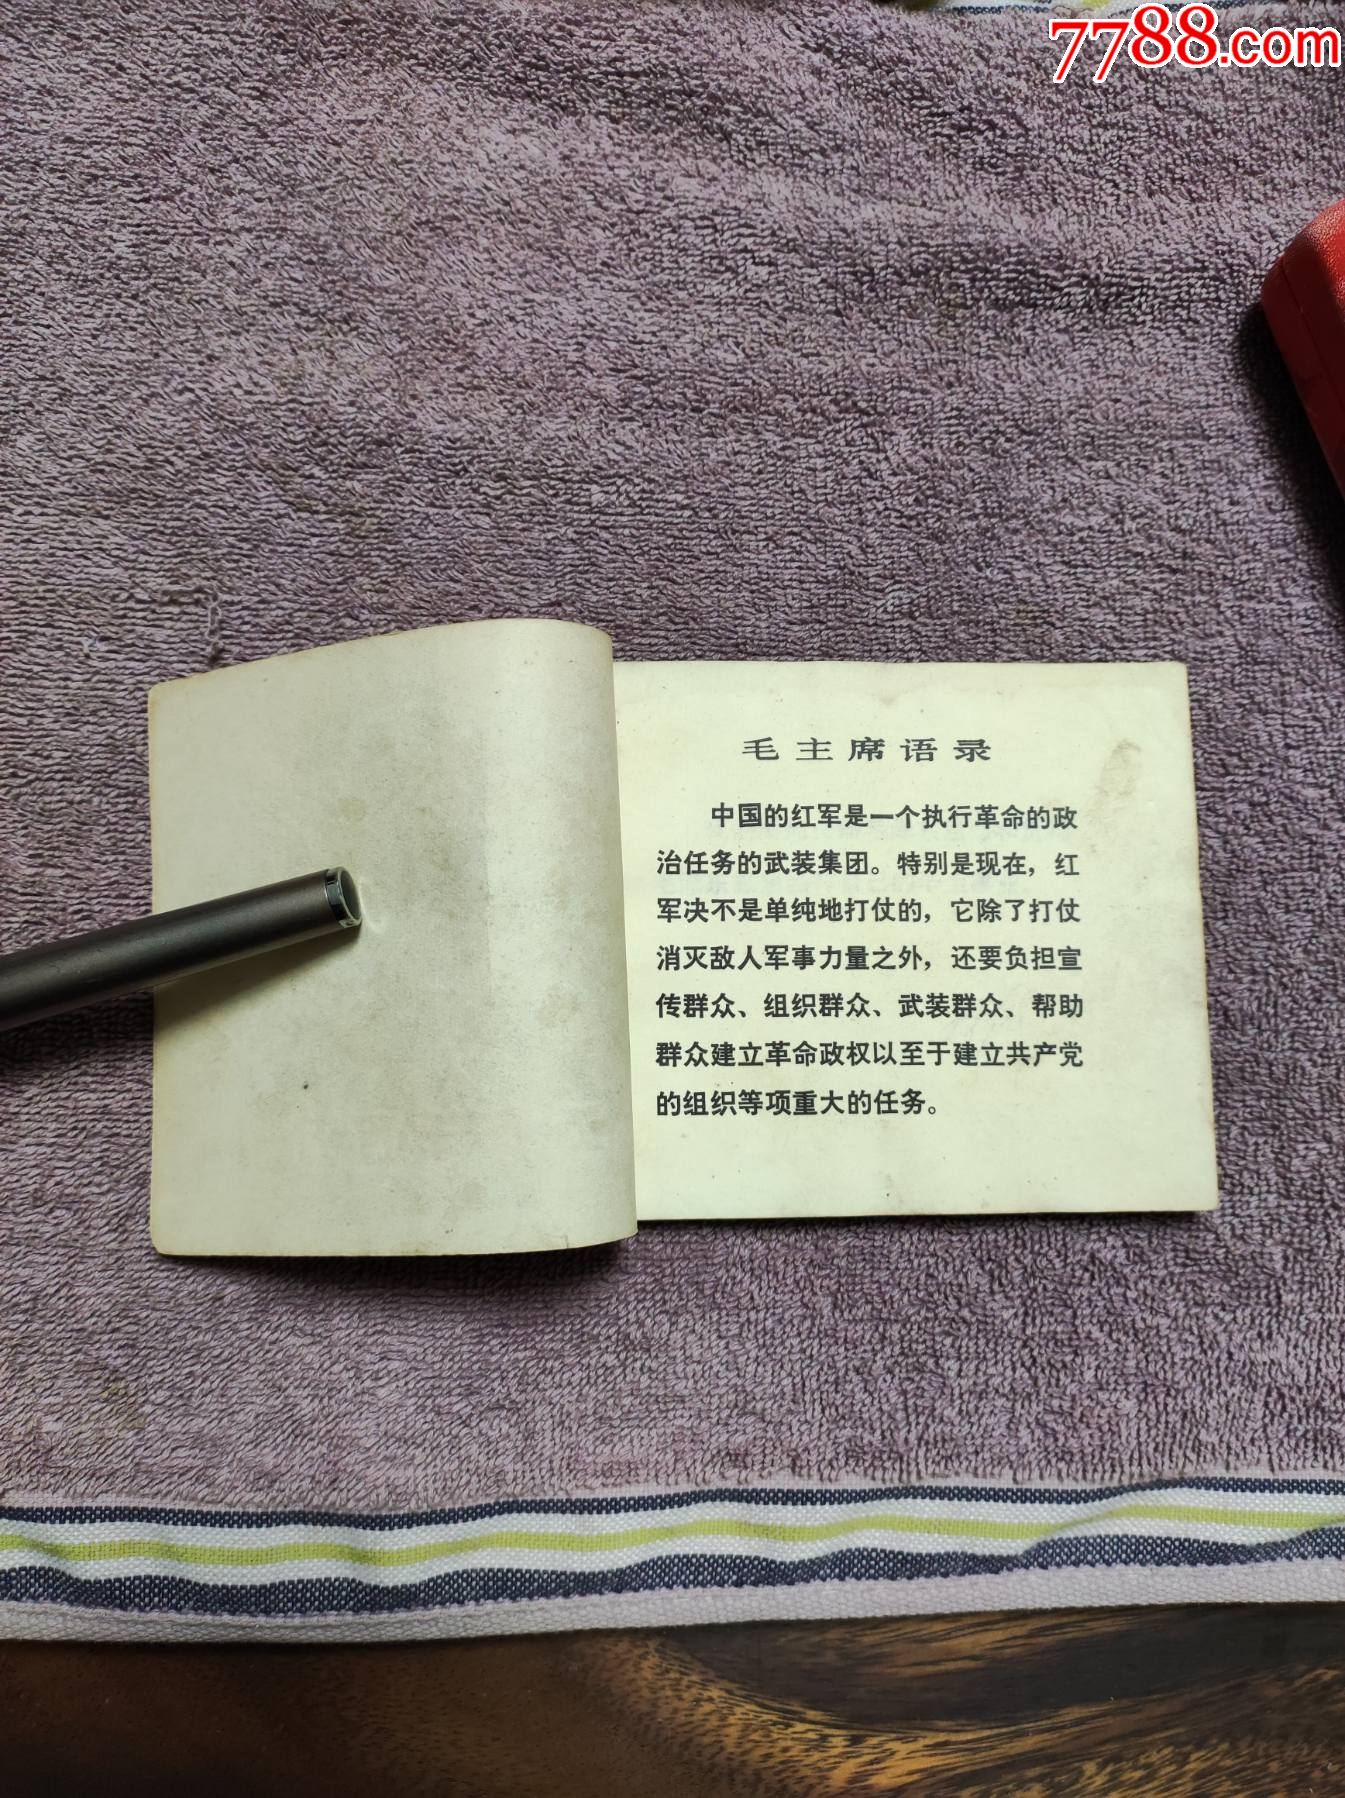 7788.com
毛主席语录
中国的红军是一个执行革命的政
治任务的武装集团。特别是现在，红
军决不是单纯地打仗的，它除了打仗
消灭敌人军事力量之外，还要负担宣
传群众、组织群众、武装群众、帮助
群众建立革命政权以至于建立共产党
的组织等项重大的任务。